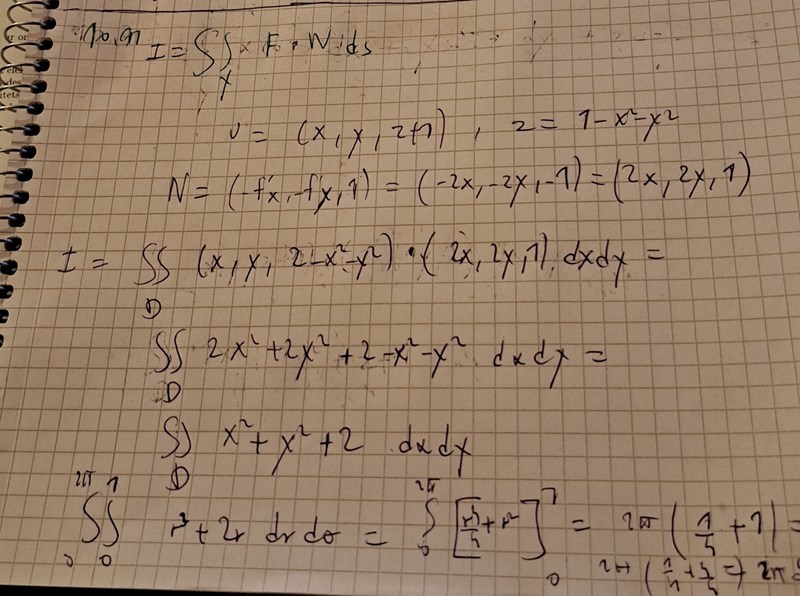 I = ∬ F · N ds
Y
U = (x, y, z+1), z = 1-x²-y²
N = (-f'x, -f'y, 1) = (-2x, -2y, -1) = (2x, 2y, 1)
I = ∬ (x, y, 2-x²-y²) · (2x, 2y, 1) dxdy =
D
∬ 2x²+2y²+2-x²-y² dxdy =
D
∬ x²+y²+2 dxdy
D
2π 1 2π 1
∬ r³+2r dr dθ = ∫ [r⁴/4 + r²] = 2π (1/4 + 1) =
0 0 0 0 2π (1/4 + 4/4) = 2π